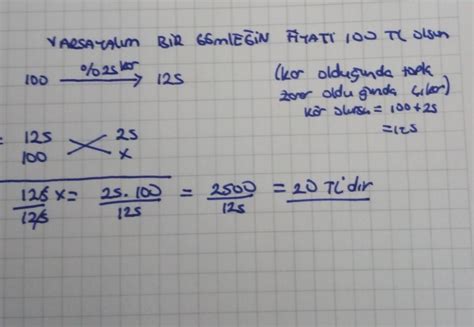 VARSAYALIM BİR GÖMLEĞİN FİYATI 100 TL olsun
100 %25 kar → 125
(kar olduğunda topla
zarar olduğunda çıkar)
kâr olursa = 100+25
=125
= 125 25
100 x
125 x = 25.100 = 2500 = 20 TL'dir
125 125 125